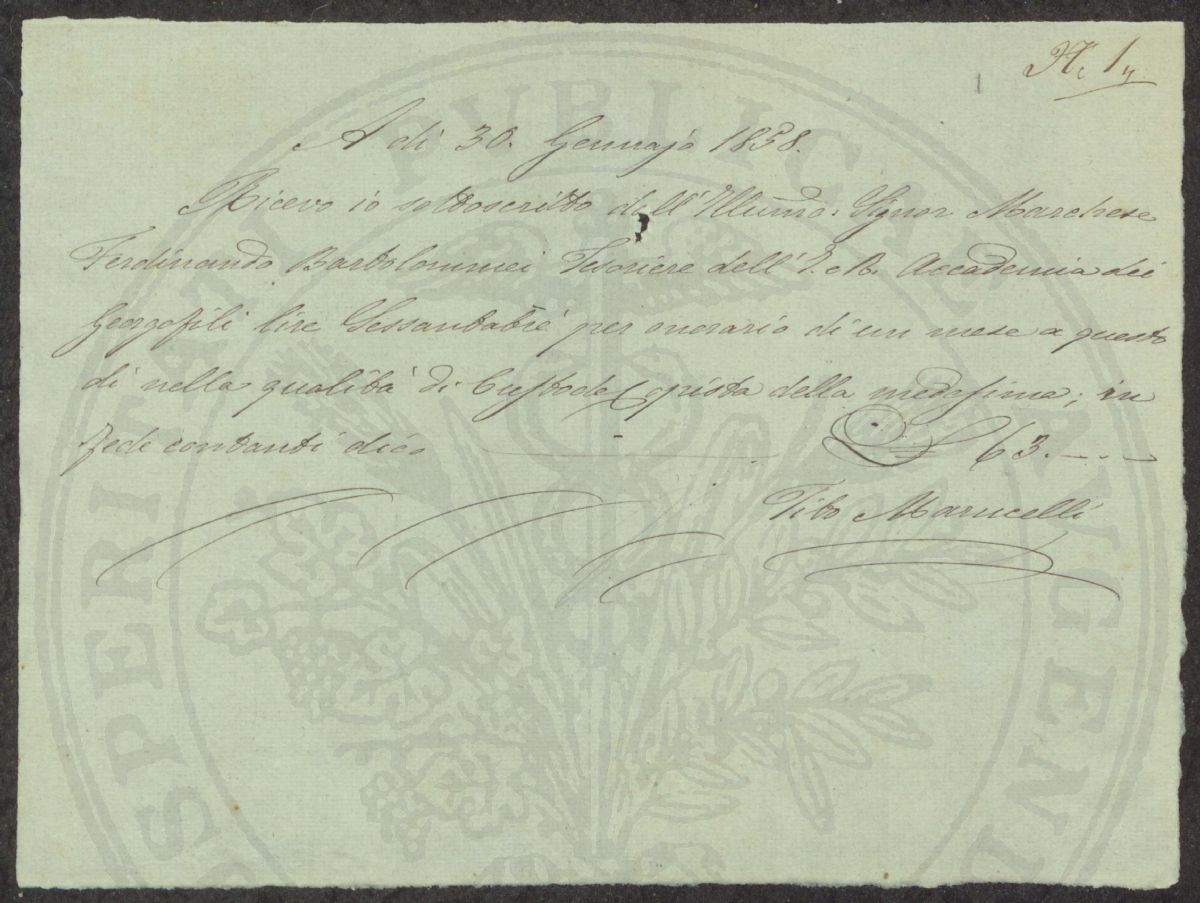 N. 1,,
A dì 30. Gennajo 1858.
Ricevo io sottoscritto dall'Illumo: Signor Marchese
Ferdinando Bartolommei Tesoriere dell'I. e R. Accademia dei
Georgofili lire Sessantatrè per onorario di un mese a questo
dì nella qualità di Custode Copista della medesima; in
fede contanti dico £ 63. - - -
Tito Marucelli
PROSPERITATI PUBLICAE AUGENDAE